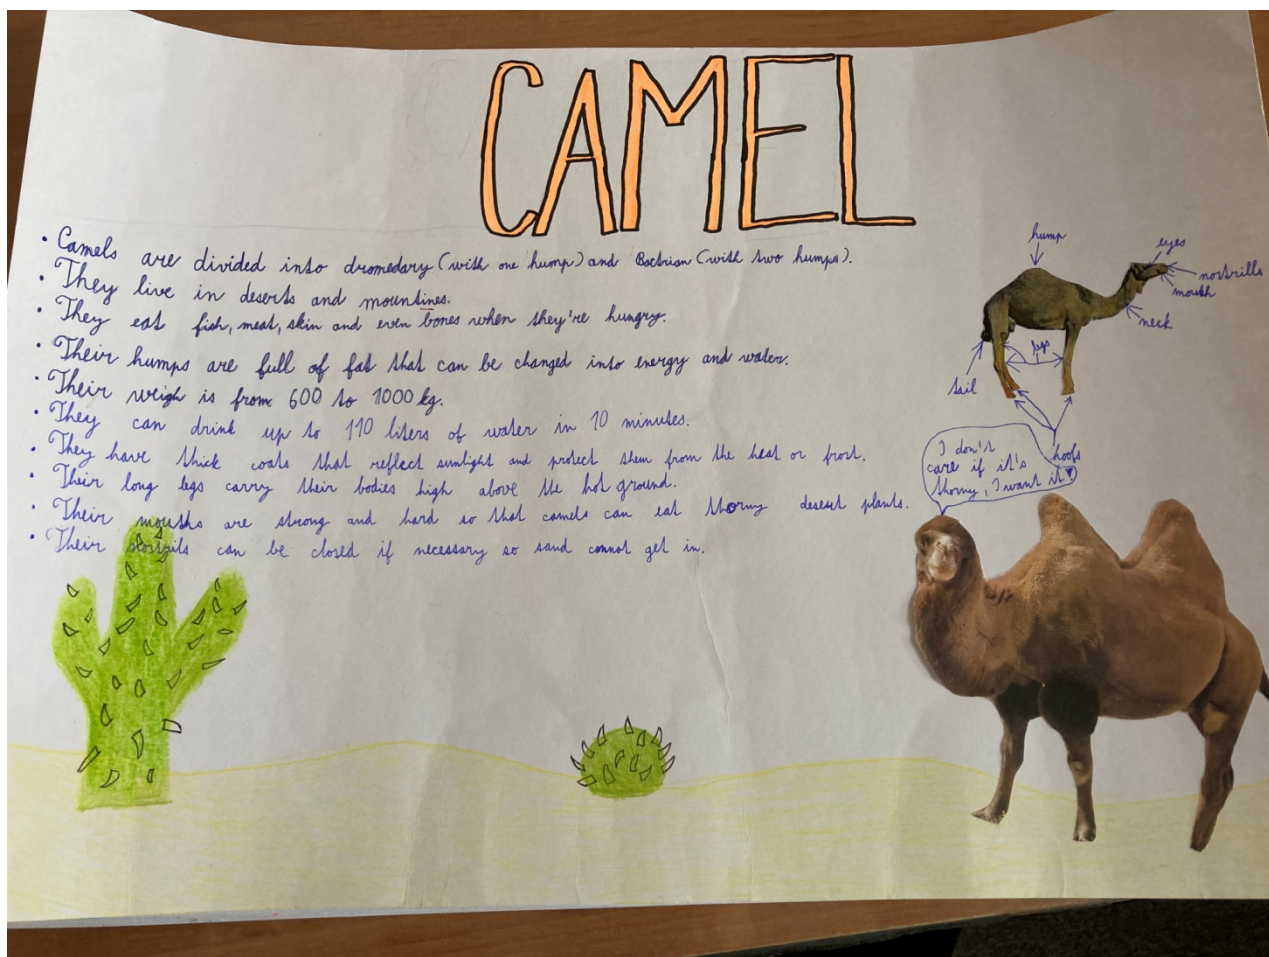 CAMEL
• Camels are divided into dromedary (with one hump) and Bactrian (with two humps).
• They live in deserts and mountines.
• They eat fish, meat, skin and even bones when they're hungry.
• Their humps are full of fat that can be changed into energy and water.
• Their weigh is from 600 to 1000 kg.
• They can drink up to 110 liters of water in 10 minutes.
• They have thick coats that reflect sunlight and protect them from the heat or frost.
• Their long legs carry their bodies high above the hot ground.
• Their mouths are strong and hard so that camels can eat thorny desert plants.
• Their nostrils can be closed if necessary so sand cannot get in.
hump
eyes
nostrills
mouth
neck
legs
tail
hoofs
I don't
care if it's
thorny, I want it